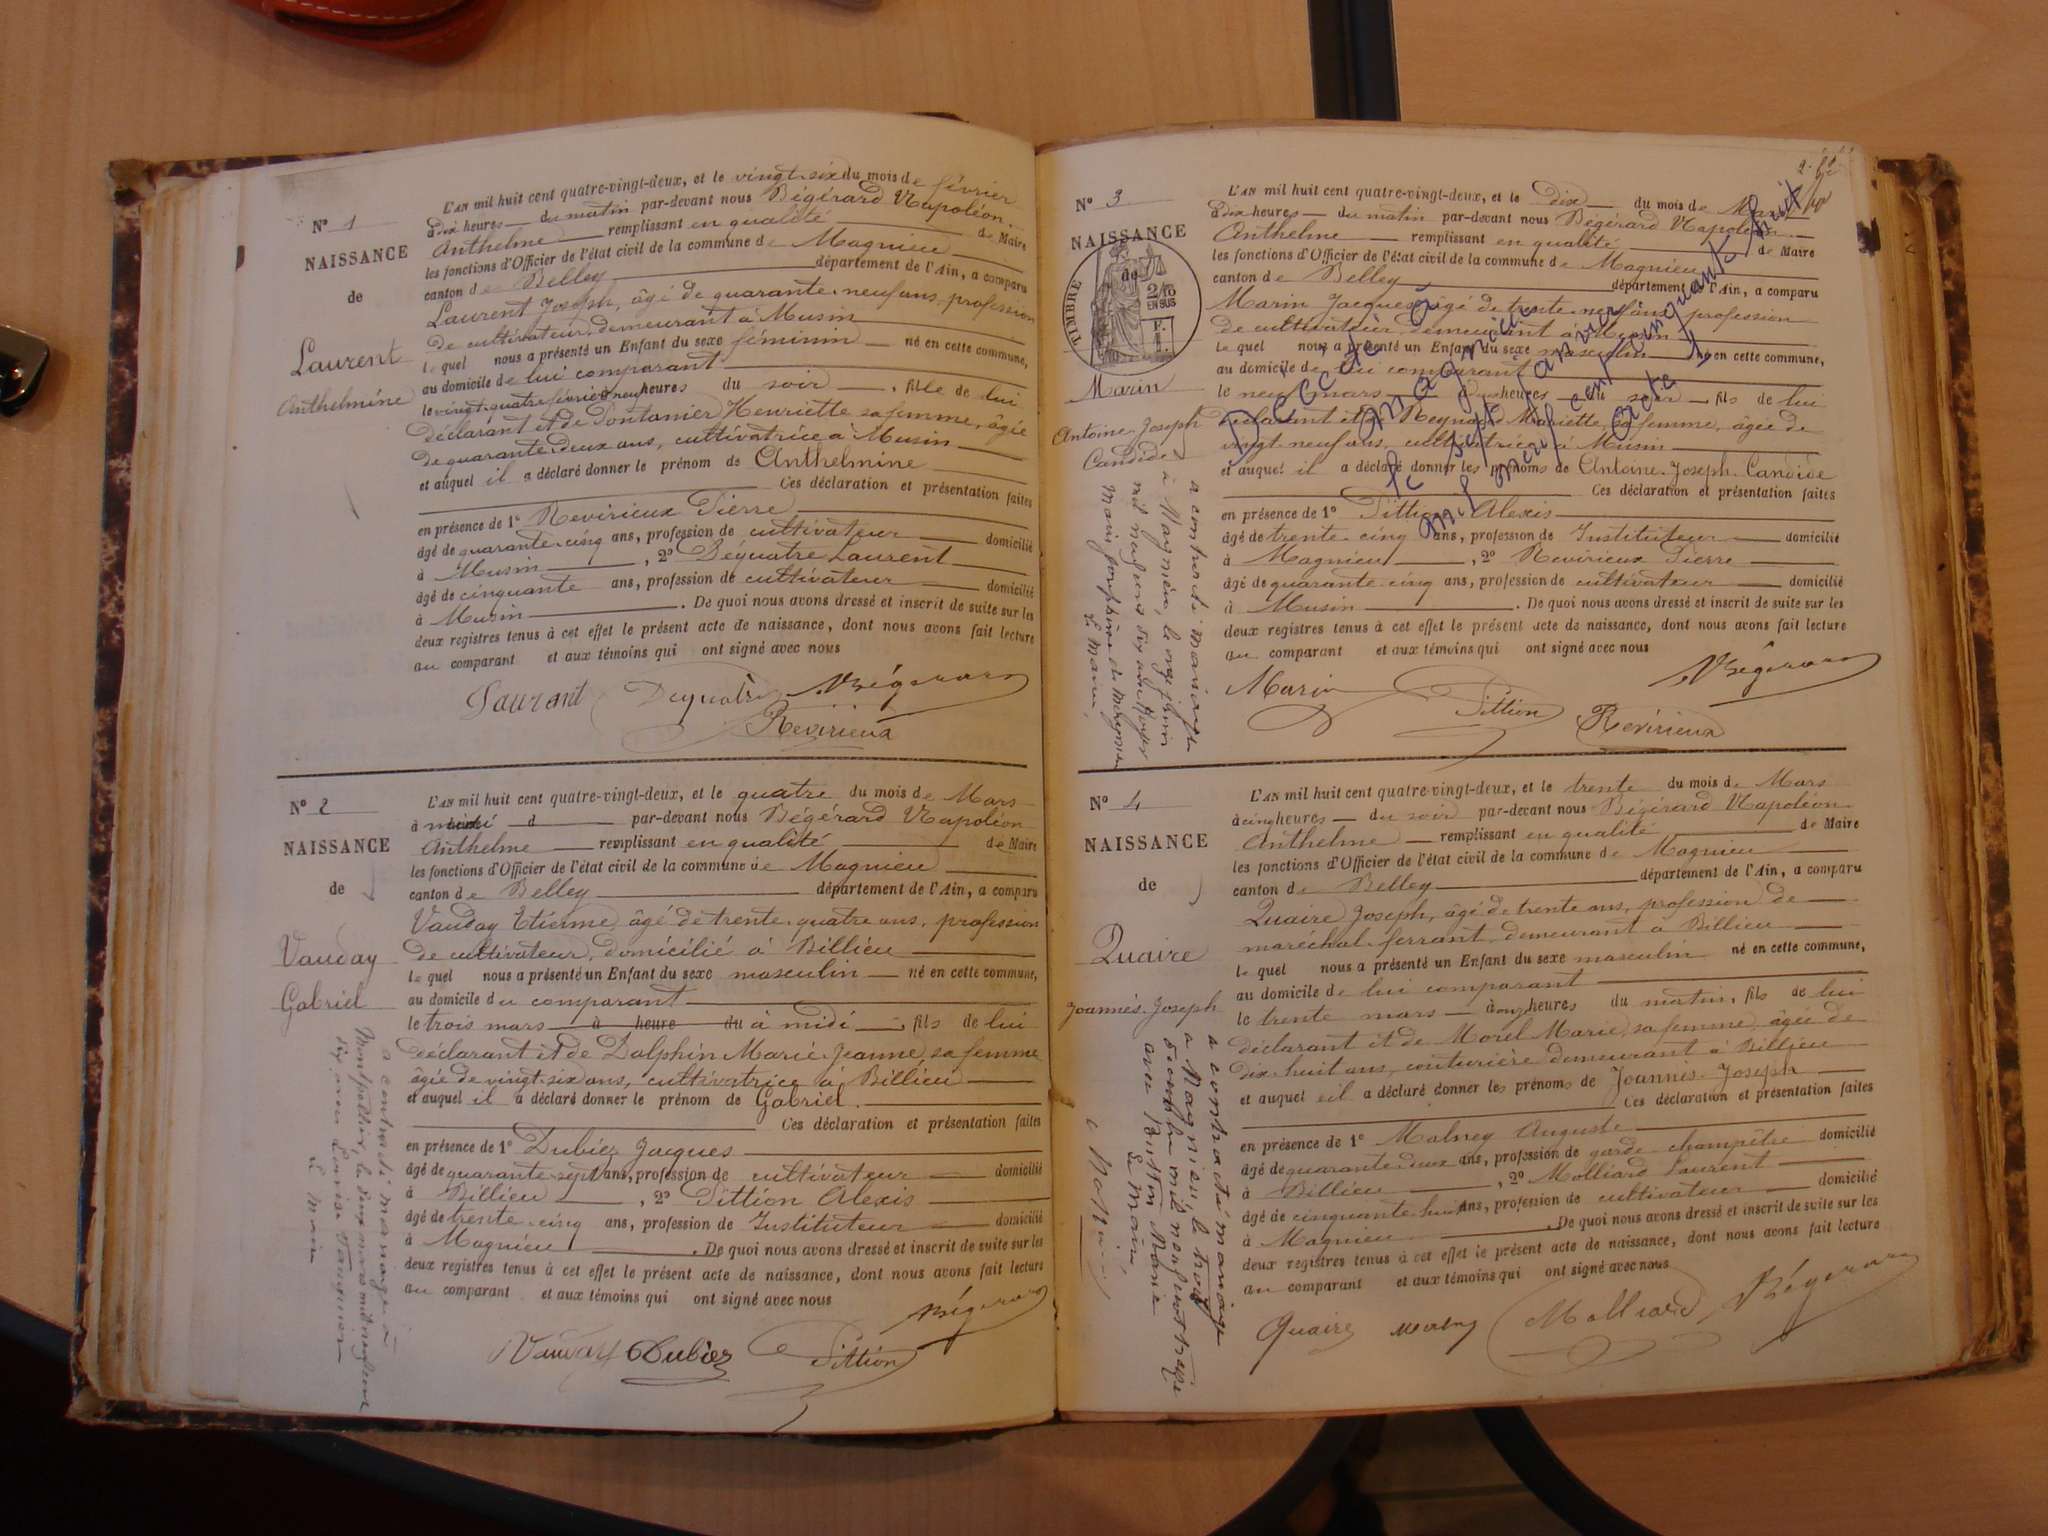 N° 1
NAISSANCE
de
Laurent
Anthelmine
L'AN mil huit cent quatre-vingt-deux, et le vingt-six du mois de février
à dix heures du matin par-devant nous Bégérard Napoléon
Anthelme remplissant en qualité de Maire
les fonctions d'Officier de l'état civil de la commune de Magnieu
canton de Belley département de l'Ain, a comparu
Laurent Joseph, âgé de quarante-neuf ans, profession
de cultivateur, demeurant à Musin
lequel nous a présenté un Enfant du sexe féminin né en cette commune,
au domicile de lui comparant
le vingt-quatre février à neuf heures du soir, fille de lui
déclarant et de Pontanier Henriette sa femme, âgée
de quarante-deux ans, cultivatrice à Musin
et auquel il a déclaré donner le prénom de Anthelmine
Ces déclaration et présentation faites
en présence de 1° Revirieux Pierre
âgé de quarante-cinq ans, profession de cultivateur domicilié
à Musin, 2° Dequatre Laurent
âgé de cinquante ans, profession de cultivateur domicilié
à Musin. De quoi nous avons dressé et inscrit de suite sur les
deux registres tenus à cet effet le présent acte de naissance, dont nous avons fait lecture
au comparant et aux témoins qui ont signé avec nous
Laurent Dequatre NBégérard
Revirieux
N° 2
NAISSANCE
de
Vauday
Gabriel
a contracté mariage à
Montpellier, le deux mars mil neuf cent
dix avec Louise
Le Maire
L'AN mil huit cent quatre-vingt-deux, et le quatre du mois de Mars
à midi d par-devant nous Bégérard Napoléon
Anthelme remplissant en qualité de Maire
les fonctions d'Officier de l'état civil de la commune de Magnieu
canton de Belley département de l'Ain, a comparu
Vauday Etienne, âgé de trente-quatre ans, profession
de cultivateur, domicilié à Billieu
lequel nous a présenté un Enfant du sexe masculin né en cette commune,
au domicile du comparant
le trois mars à heure du à midi, fils de lui
déclarant et de Dalphin Marie-Jeanne, sa femme
âgée de vingt-six ans, cultivatrice à Billieu
et auquel il a déclaré donner le prénom de Gabriel.
Ces déclaration et présentation faites
en présence de 1° Dubiez Jacques
âgé de quarante-sept ans, profession de cultivateur domicilié
à Billieu, 2° Pittion Alexis
âgé de trente-cinq ans, profession de Instituteur domicilié
à Magnieu. De quoi nous avons dressé et inscrit de suite sur les
deux registres tenus à cet effet le présent acte de naissance, dont nous avons fait lecture
au comparant et aux témoins qui ont signé avec nous
NBégérard
Vauday Dubiez Pittion
N° 3
NAISSANCE
de
TIMBRE
2/10
EN SUS
Marin
Antoine-Joseph
Candide
a contracté mariage
à Magnieu, le onze juin
mil neuf cent dix avec
Marie Joséphine
Le Maire,
L'AN mil huit cent quatre-vingt-deux, et le dix du mois de Mars
à dix heures du matin par-devant nous Bégérard Napoléon
Anthelme remplissant en qualité de Maire
les fonctions d'Officier de l'état civil de la commune de Magnieu
canton de Belley département de l'Ain, a comparu
Marin Jacques, âgé de trente-neuf ans, profession
de cultivateur, demeurant à Musin
lequel nous a présenté un Enfant du sexe masculin né en cette commune,
au domicile de lui comparant
le neuf mars à heures du soir fils de lui
déclarant et de Reynaud Mariette, sa femme, âgée de
vingt-neuf ans, cultivatrice à Musin
et auquel il a déclaré donner les prénoms de Antoine-Joseph-Candide
Ces déclaration et présentation faites
en présence de 1° Pittion Alexis
âgé de trente-cinq ans, profession de Instituteur domicilié
à Magnieu, 2° Revirieux Pierre
âgé de quarante-cinq ans, profession de cultivateur domicilié
à Musin. De quoi nous avons dressé et inscrit de suite sur les
deux registres tenus à cet effet le présent acte de naissance, dont nous avons fait lecture
au comparant et aux témoins qui ont signé avec nous
NBégérard
Marin Pittion Revirieux
Décédé à
Magnieu
le sept janvier
mil neuf cent cinquante huit
Acte 1
N° 4
NAISSANCE
de
Quaire
Joannès-Joseph
a contracté mariage
à Magnieu, le trois
mil neuf cent treize
avec Pontin Marie
Le Maire,
L'AN mil huit cent quatre-vingt-deux, et le trente du mois de Mars
à cinq heures du soir par-devant nous Bégérard Napoléon
Anthelme remplissant en qualité de Maire
les fonctions d'Officier de l'état civil de la commune de Magnieu
canton de Belley département de l'Ain, a comparu
Quaire Joseph, âgé de trente ans, profession de
maréchal-ferrant, demeurant à Billieu
lequel nous a présenté un Enfant du sexe masculin né en cette commune,
au domicile de lui comparant
le trente mars à onze heures du matin, fils de lui
déclarant et de Morel Marie, sa femme, âgée de
dix-huit ans, couturière demeurant à Billieu
et auquel il a déclaré donner les prénoms de Joannès-Joseph
Ces déclaration et présentation faites
en présence de 1° Malney Auguste
âgé de quarante-deux ans, profession de garde champêtre domicilié
à Billieu, 2° Molliard Laurent
âgé de cinquante-huit ans, profession de cultivateur domicilié
à Magnieu. De quoi nous avons dressé et inscrit de suite sur les
deux registres tenus à cet effet le présent acte de naissance, dont nous avons fait lecture
au comparant et aux témoins qui ont signé avec nous
Quaire Malney Molliard NBégérard